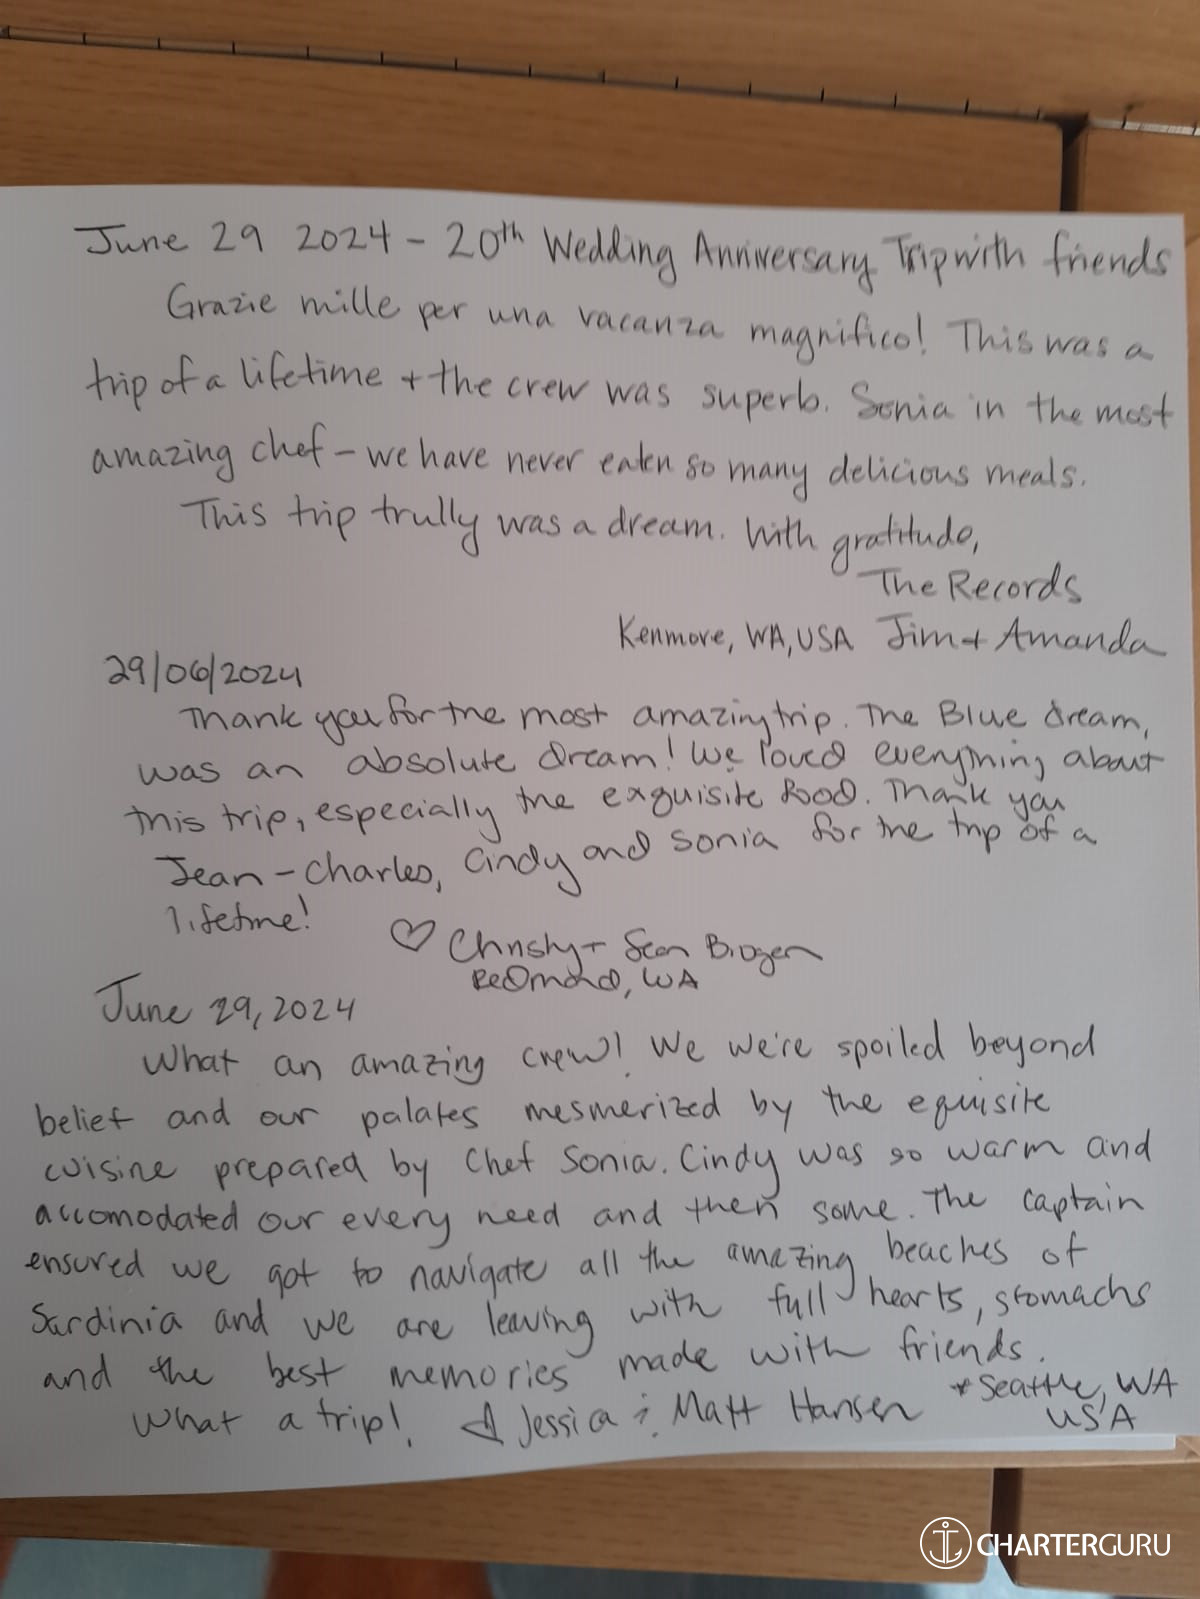 June 29 2024 - 20th Wedding Anniversary Trip with friends
Grazie mille per una vacanza magnifico! This was a
trip of a lifetime + the crew was superb. Sonia in the most
amazing chef - we have never eaten so many delicious meals.
This trip trully was a dream. With gratitude,
The Records
Kenmore, WA, USA Jim + Amanda
29/06/2024
Thank you for the most amazing trip. The Blue dream,
was an absolute dream! We loved everything about
this trip, especially the exquisite food. Thank you
Jean-Charles, Cindy and Sonia for the trip of a
lifetime!
♡ Christy + Sean
Redmond, WA
June 29, 2024
What an amazing crew! We we're spoiled beyond
belief and our palates mesmerized by the equisite
cuisine prepared by Chef Sonia. Cindy was so warm and
accomodated our every need and then some. The captain
ensured we got to navigate all the amazing beaches of
Sardinia and we are leaving with full hearts, stomachs
and the best memories made with friends.
What a trip! Jessica & Matt Hansen *Seattle, WA
USA
CHARTERGURU